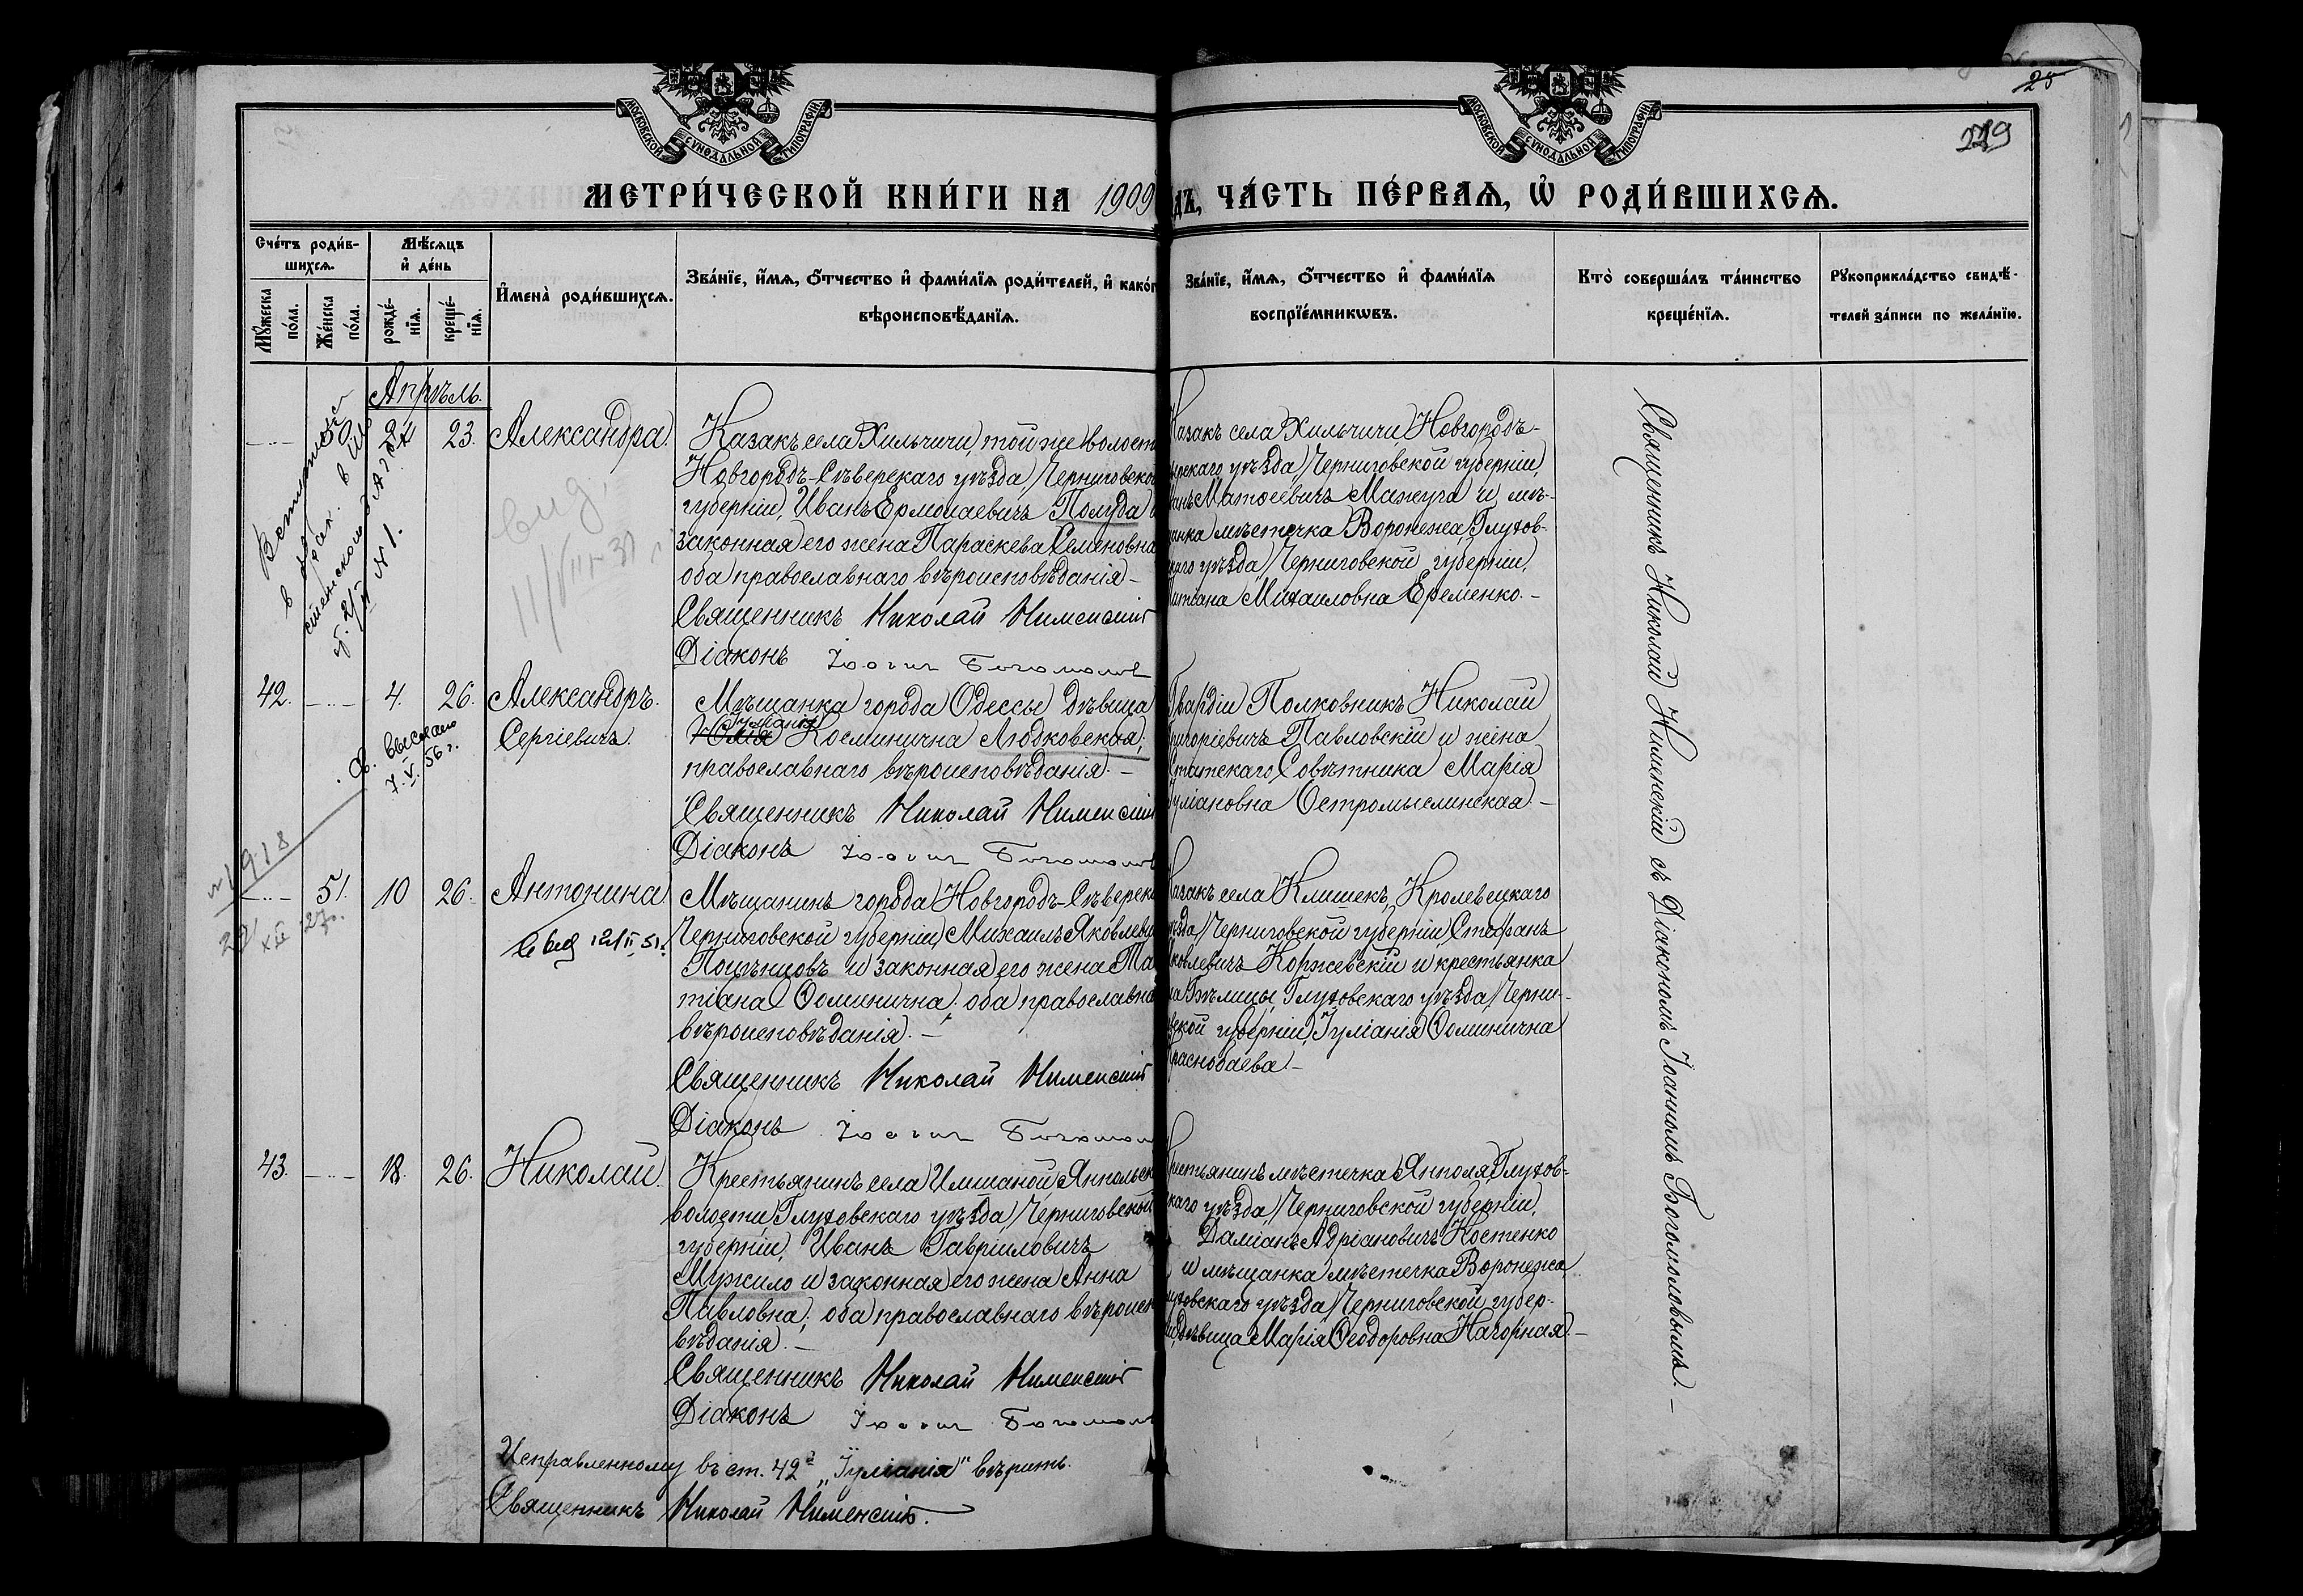 25
229
МОСКОВСКОЙ СѴНОДАЛЬНОЙ ТИПОГРАФІИ
МОСКОВСКОЙ СѴНОДАЛЬНОЙ ТИПОГРАФІИ
МЕТРИ́ЧЕСКОЙ КНИ́ГИ НА 1909
дъ, ЧА́СТЬ ПЕ́РВАѦ, Ѿ РОДИ́ВШИХСѦ.
Сче́тъ роди́в-
шихсѧ.
Мꙋ́жеска
по́ла.
Же́нска
по́ла.
Мѣ́сѧцъ
и҆ де́нь
рожде́-
нїѧ.
креще́-
нїѧ.
И҆мена̀ роди́вшихсѧ.
Зва́нїе, и҆́мѧ, ѻ҆́тчество и҆ фами́лїѧ роди́телей, и҆ како́г
вѣроисповѣ́данїѧ.
Зва́нїе, и҆́мѧ, ѻ҆́тчество и҆ фами́лїѧ
воспрїе́мникωвъ.
Кто̀ соверша́лъ та́инство
креще́нїѧ.
Рꙋкоприкла́дство свидѣ́-
телей за́писи по жела́нїю.
Апрѣль.
50. 23. Александра.
Казакъ села Хильчичи, той же волост
Новгородъ-Сѣверскаго уѣзда, Черниговско
губерніи, Иванъ Ермолаевичъ Полуда и
законная его жена Параскева Семеновна
оба православнаго вѣроисповѣданія.–
Священникъ Николай Нименскій
Діаконъ Іоаннъ Богомолов
Казакъ села Хильчичи, Новгородъ-
ерскаго уѣзда, Черниговской губерніи,
анъ Матвеевичъ Мажуга и мѣ-
анка мѣстечка Воронежа, Глухов-
каго уѣзда, Черниговской губерніи,
Татіана Михаиловна Еременко.–
вид.
42. 4. 26. Александръ
Сергіевичъ.
Мѣщанка города Одессы дѣвица
Іуліанія
Юлія Косминична Людковская;
православнаго вѣроисповѣданія.–
Священникъ Николай Нименскій
Діаконъ Іоаннъ Богомолов
Гвардіи Полковникъ Николай
Григоріевичъ Павловскій и жена
Статскаго Совѣтника Марія
Іуліановна Остромыслинская.–
Св. выслано
7.V.56 г.
51. 10 26. Антонина
Мѣщанинъ города Новгородъ-Сѣверск
Черниговской губерніи, Михаилъ Яковлеви
и законная его жена Та
тіана Ѳоминична; оба православна
вѣроисповѣданія.–
Священникъ Николай Нименскій
Діаконъ Іоаннъ Богомолов
Казакъ села Клишекъ, Кролевецкаго
уѣзда, Черниговской губерніи, Стефанъ
ковлевичъ Коржевскій и крестьянка
ла Бѣлицы, Глуховскаго уѣзда, Черни-
вской губерніи, Іуліанія Ѳоминична
Краснобаева.–
43. 18. 26. Николай.
Крестьянинъ села Имшаной, Янпольск
волости, Глуховскаго уѣзда, Черниговской
губерніи, Иванъ Гавріиловичъ
Мужило и законная его жена Анна
Павловна; оба православнаго вѣроисп
вѣданія.–
Священникъ Николай Нименскій
Діаконъ Іоаннъ Богомолов
Крестьянинъ мѣстечка Янполя, Глухов-
скаго уѣзда, Черниговской губерніи,
Даміанъ Адріановичъ Костенко
и мѣщанка мѣстечка Воронежа,
уховскаго уѣзда, Черниговской губер-
іи, дѣвица Марія Ѳеодоровна Нагорная.–
Священникъ Николай Нименскій съ Діакономъ Іоанномъ Богомоловымъ.–
Исправленному въ ст. 42й „Іуліанія" вѣрить.
Священникъ Николай Нименскій.